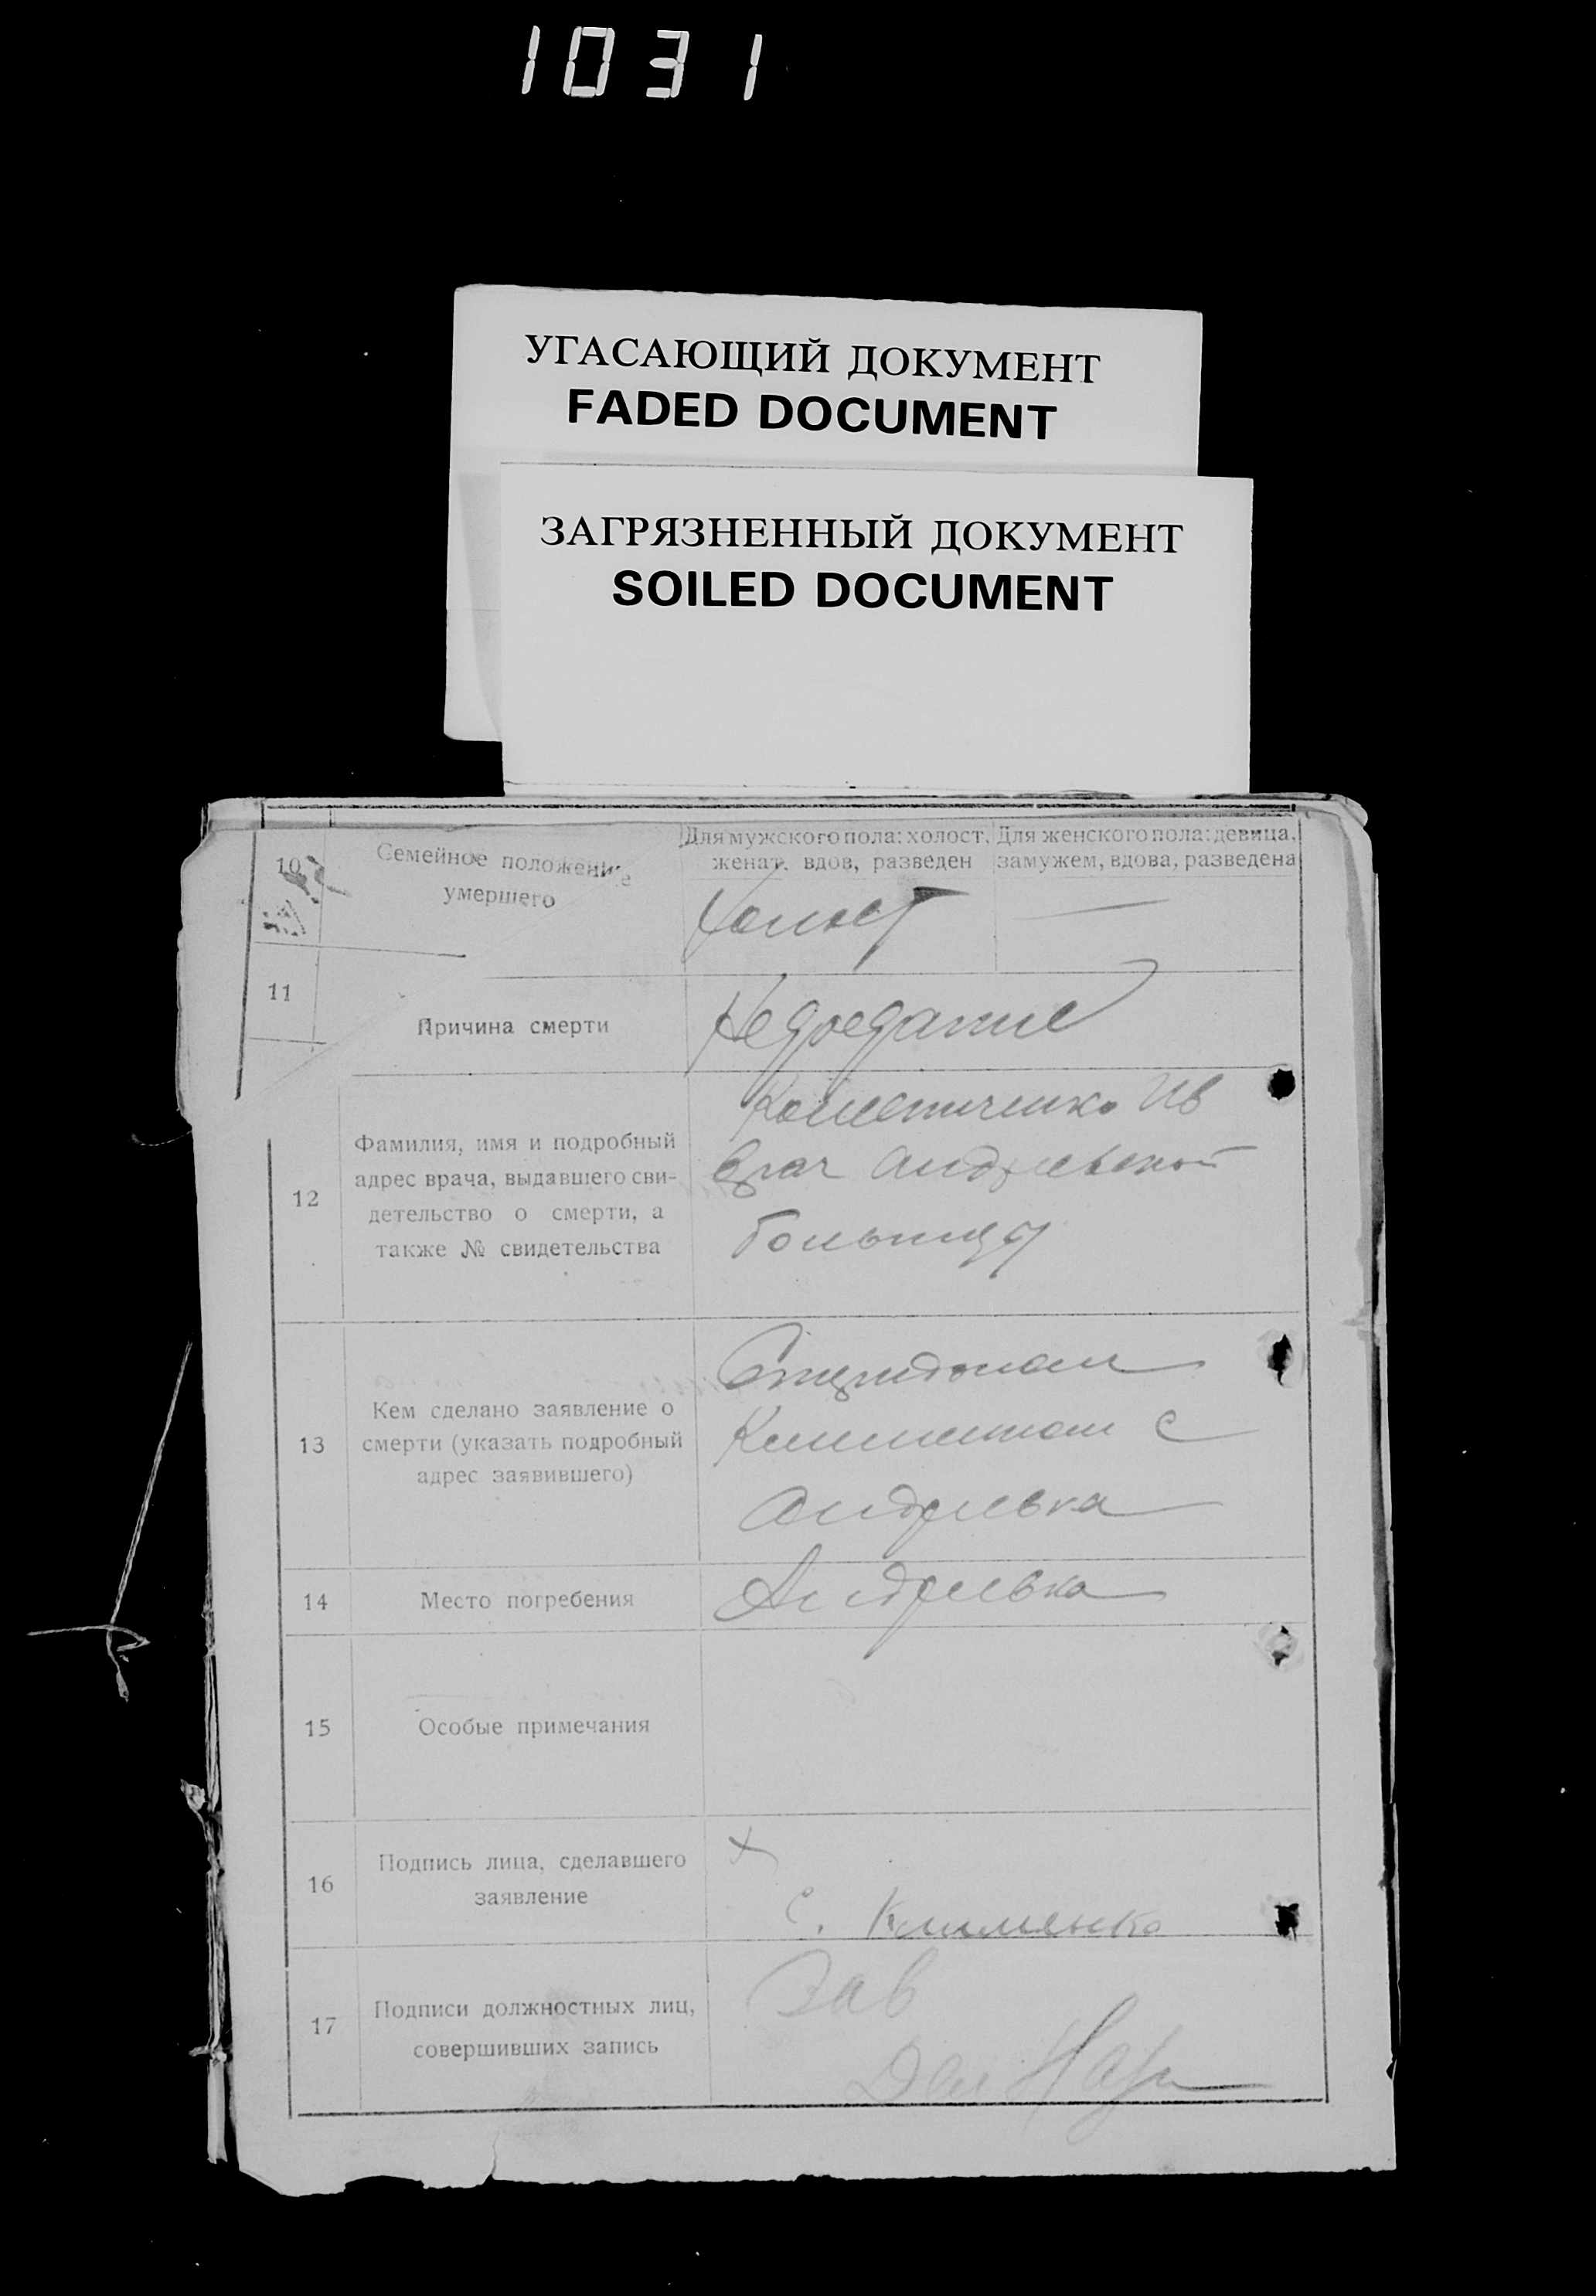 1031
УГАСАЮЩИЙ ДОКУМЕНТ
FADED DOCUMENT
ЗАГРЯЗНЕННЫЙ ДОКУМЕНТ
SOILED DOCUMENT
10
Семейное положение
умершего
Для мужского пола: холост,
женат, вдов, разведен
Для женского пола: девица,
замужем, вдова, разведена
Холост
—
11
Причина смерти
Недоедание
12
Фамилия, имя и подробный
адрес врача, выдавшего сви-
детельство о смерти, а
также № свидетельства
Ив
врач Андреевской
больницы
13
Кем сделано заявление о
смерти (указать подробный
адрес заявившего)
с
Андреевка
14
Место погребения
Андреевка
15
Особые примечания
16
Подпись лица, сделавшего
заявление
С. Клименко
17
Подписи должностных лиц,
совершивших запись
Зав